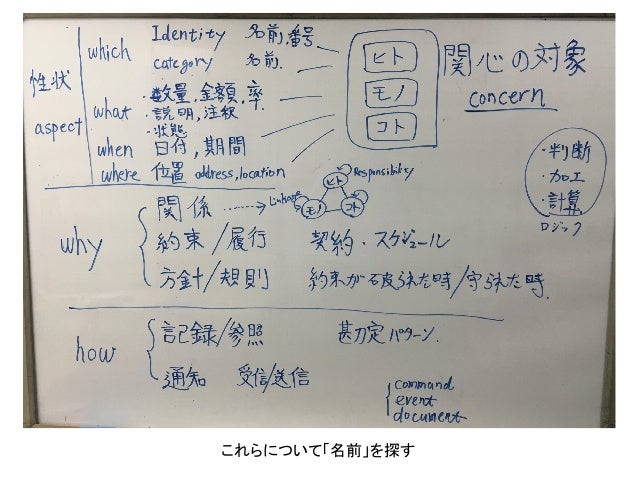 性状
aspect
which
Identity 名前,番号
category 名前.
what
・数量,金額,率
・説明,注釈
・状態
when 日付,期間
where 位置 address,location
ヒト
モノ
コト
関心の対象
concern
・判断
・加工
・計算
ロジック
why
関係
Linkage
ヒト
モノ
コト
Responsibility
約束/履行 契約・スケジュール
方針/規則 約束が破られた時/守られた時.
how
記録/参照 甚力定パターン.
通知 受信/送信
command
event
document
これらについて「名前」を探す